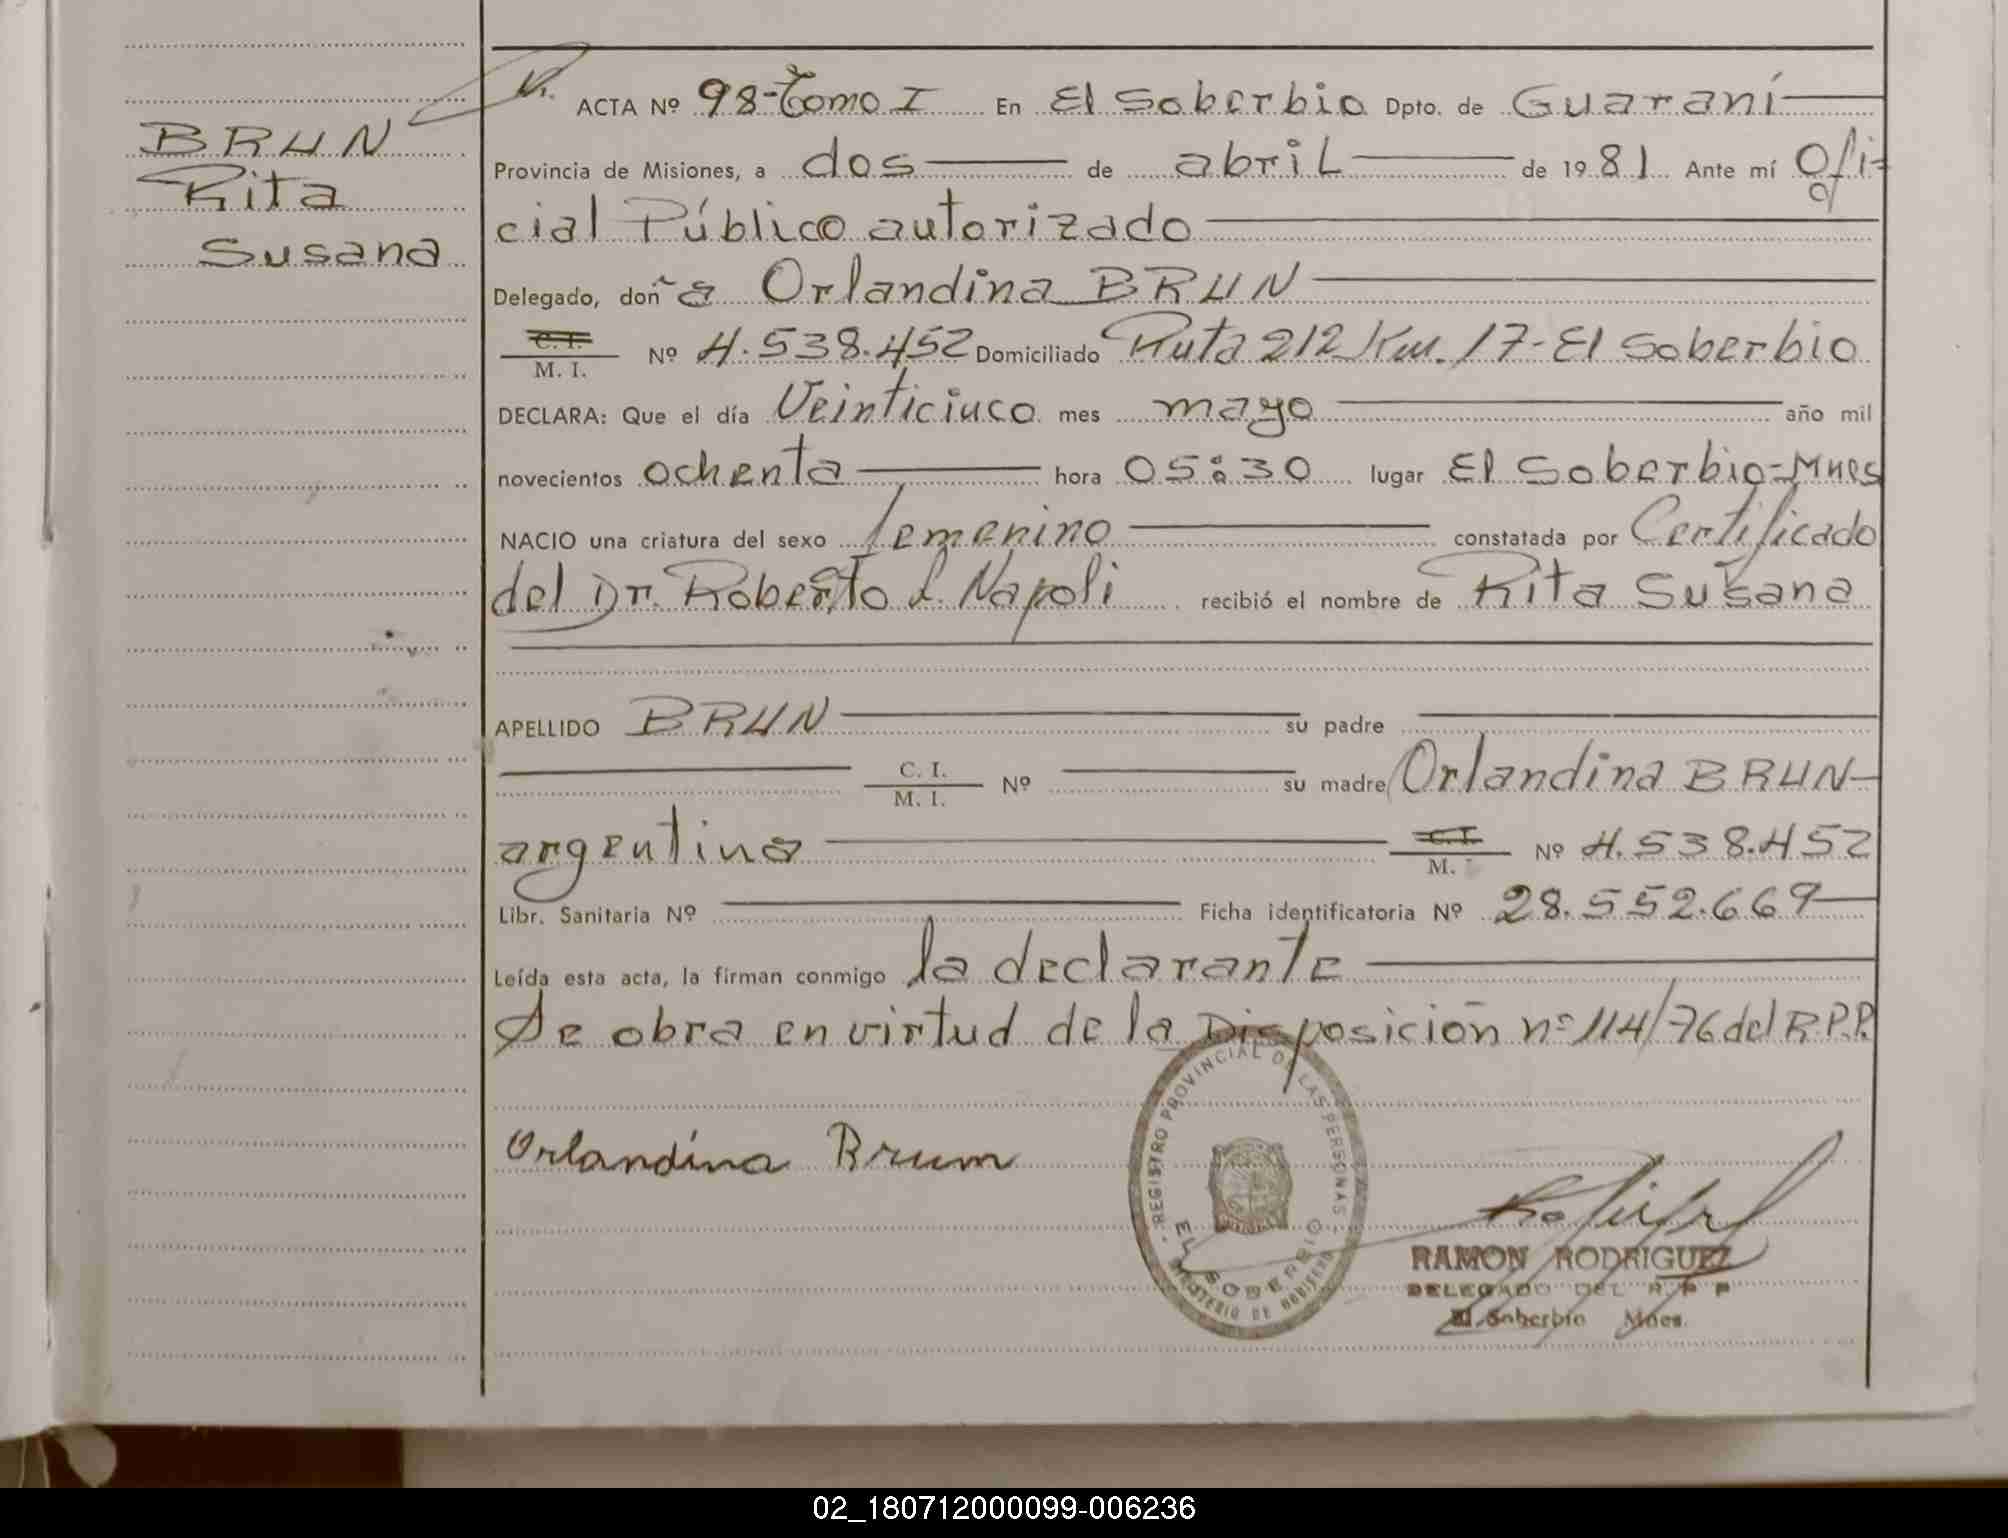 BRUN
Rita
Susana
ACTA Nº 98-Tomo I En El Soberbio Dpto. de Guaraní
Provincia de Misiones, a dos de abril de 1981 Ante mí Ofi-
cial Público autorizado
Delegado, doñ a Orlandina BRUN
C. I.
M. I. Nº 4.538.452 Domiciliado Ruta 212 Km. 17-El Soberbio
DECLARA: Que el día Veinticinco mes mayo año mil
novecientos ochenta hora 05:30 lugar El Soberbio-Mnes
NACIO una criatura del sexo femenino constatada por Certificado
del Dr. Roberto L. Napoli recibió el nombre de Rita Susana
APELLIDO BRUN su padre
C. I.
M. I. Nº su madre Orlandina BRUN
argentina C. I.
M. Nº 4.538.452
Libr. Sanitaria Nº Ficha identificatoria Nº 28.552.669
Leída esta acta, la firman conmigo la declarante
Se obra en virtud de la Disposición nº 114/76 del R.P.P.
Orlandina Brum
REGISTRO PROVINCIAL DE LAS PERSONAS
EL SOBERBIO
MINISTERIO DE GOBIERNO
RAMON RODRIGUEZ
DELEGADO DEL R P P
El Soberbio Mnes.
02_180712000099-006236